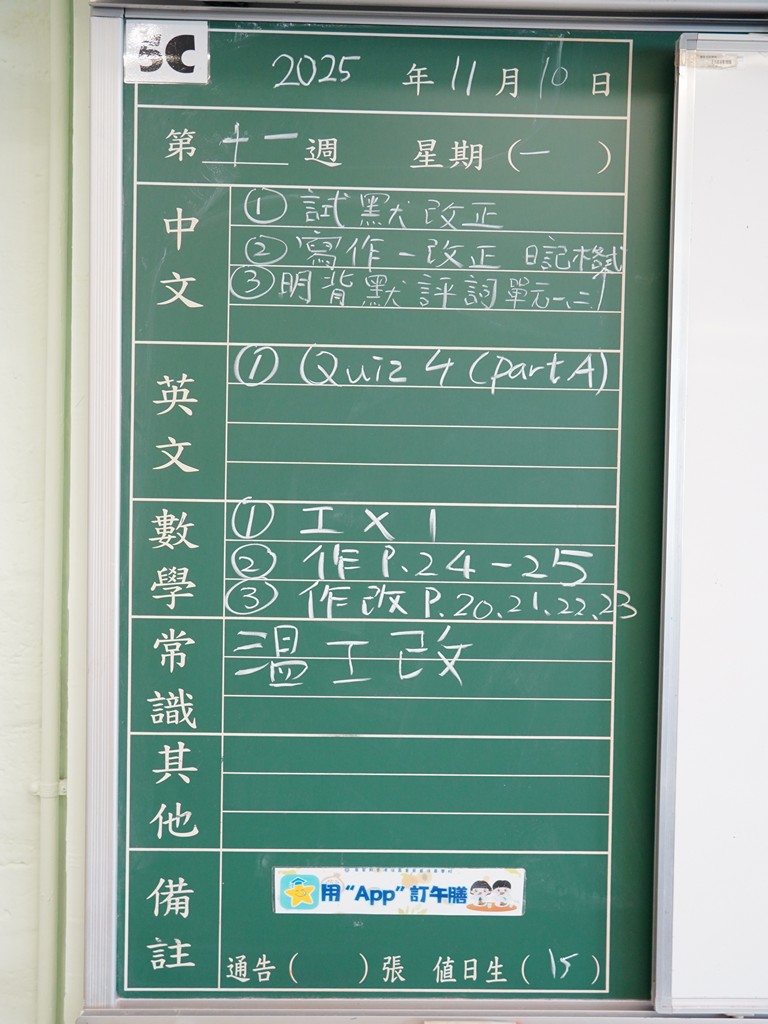 5C
2025 年 11 月 10 日
第 十一 週 星期 (一)
中文
① 試默改正
② 寫作-改正 日記格式
③ 明背默評詞 單元一、二
英文
① Quiz 4 (part A)
數學
① 工 X 1
② 作 P.24-25
③ 作改 P.20.21.22.23
常識
溫工改
其他
備註
用“App”訂午膳
通告 ( ) 張 值日生 (15)